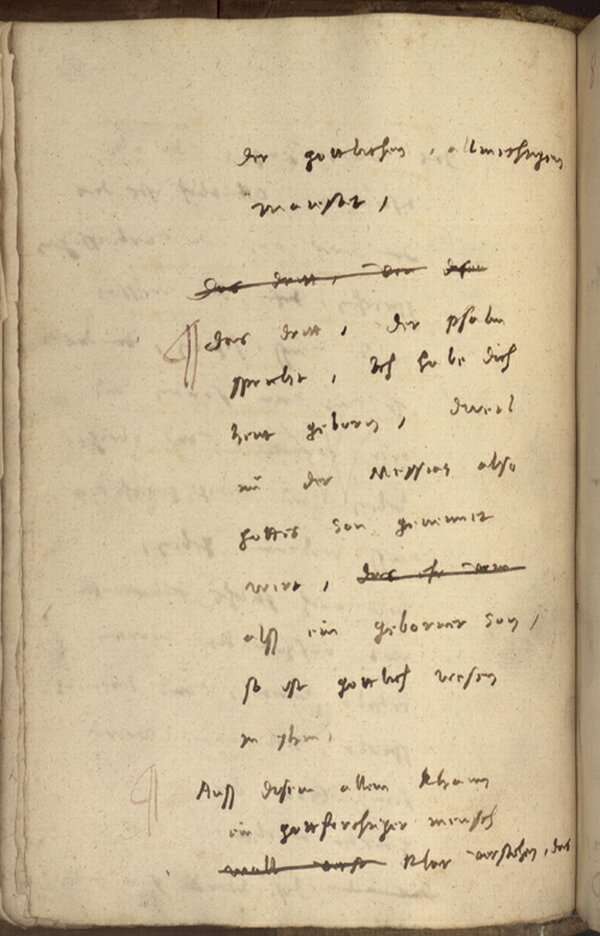 der gottlichen, allmechtigen
maiestet,
das dritt, der
¶ das dritt, der psalm
spricht, Ich habe dich
heut geborn, dweil
nu der Messias also
gottes son genennet
wirt, das ehr
alss ein geborner son,
so ist gottlich wesen
in yhm,
¶ Auss disem allem khann
ein gottforchtiger mensch
woll klar verstehen, das